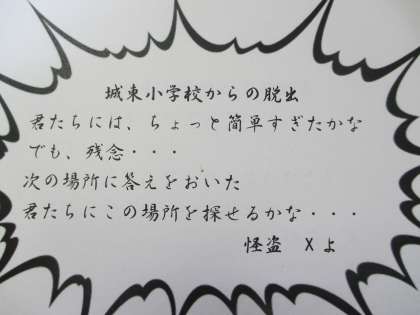 城東小学校からの脱出
君たちには、ちょっと簡単すぎたかな
でも、残念・・・
次の場所に答えをおいた
君たちにこの場所を探せるかな・・・
怪盗　Xよ